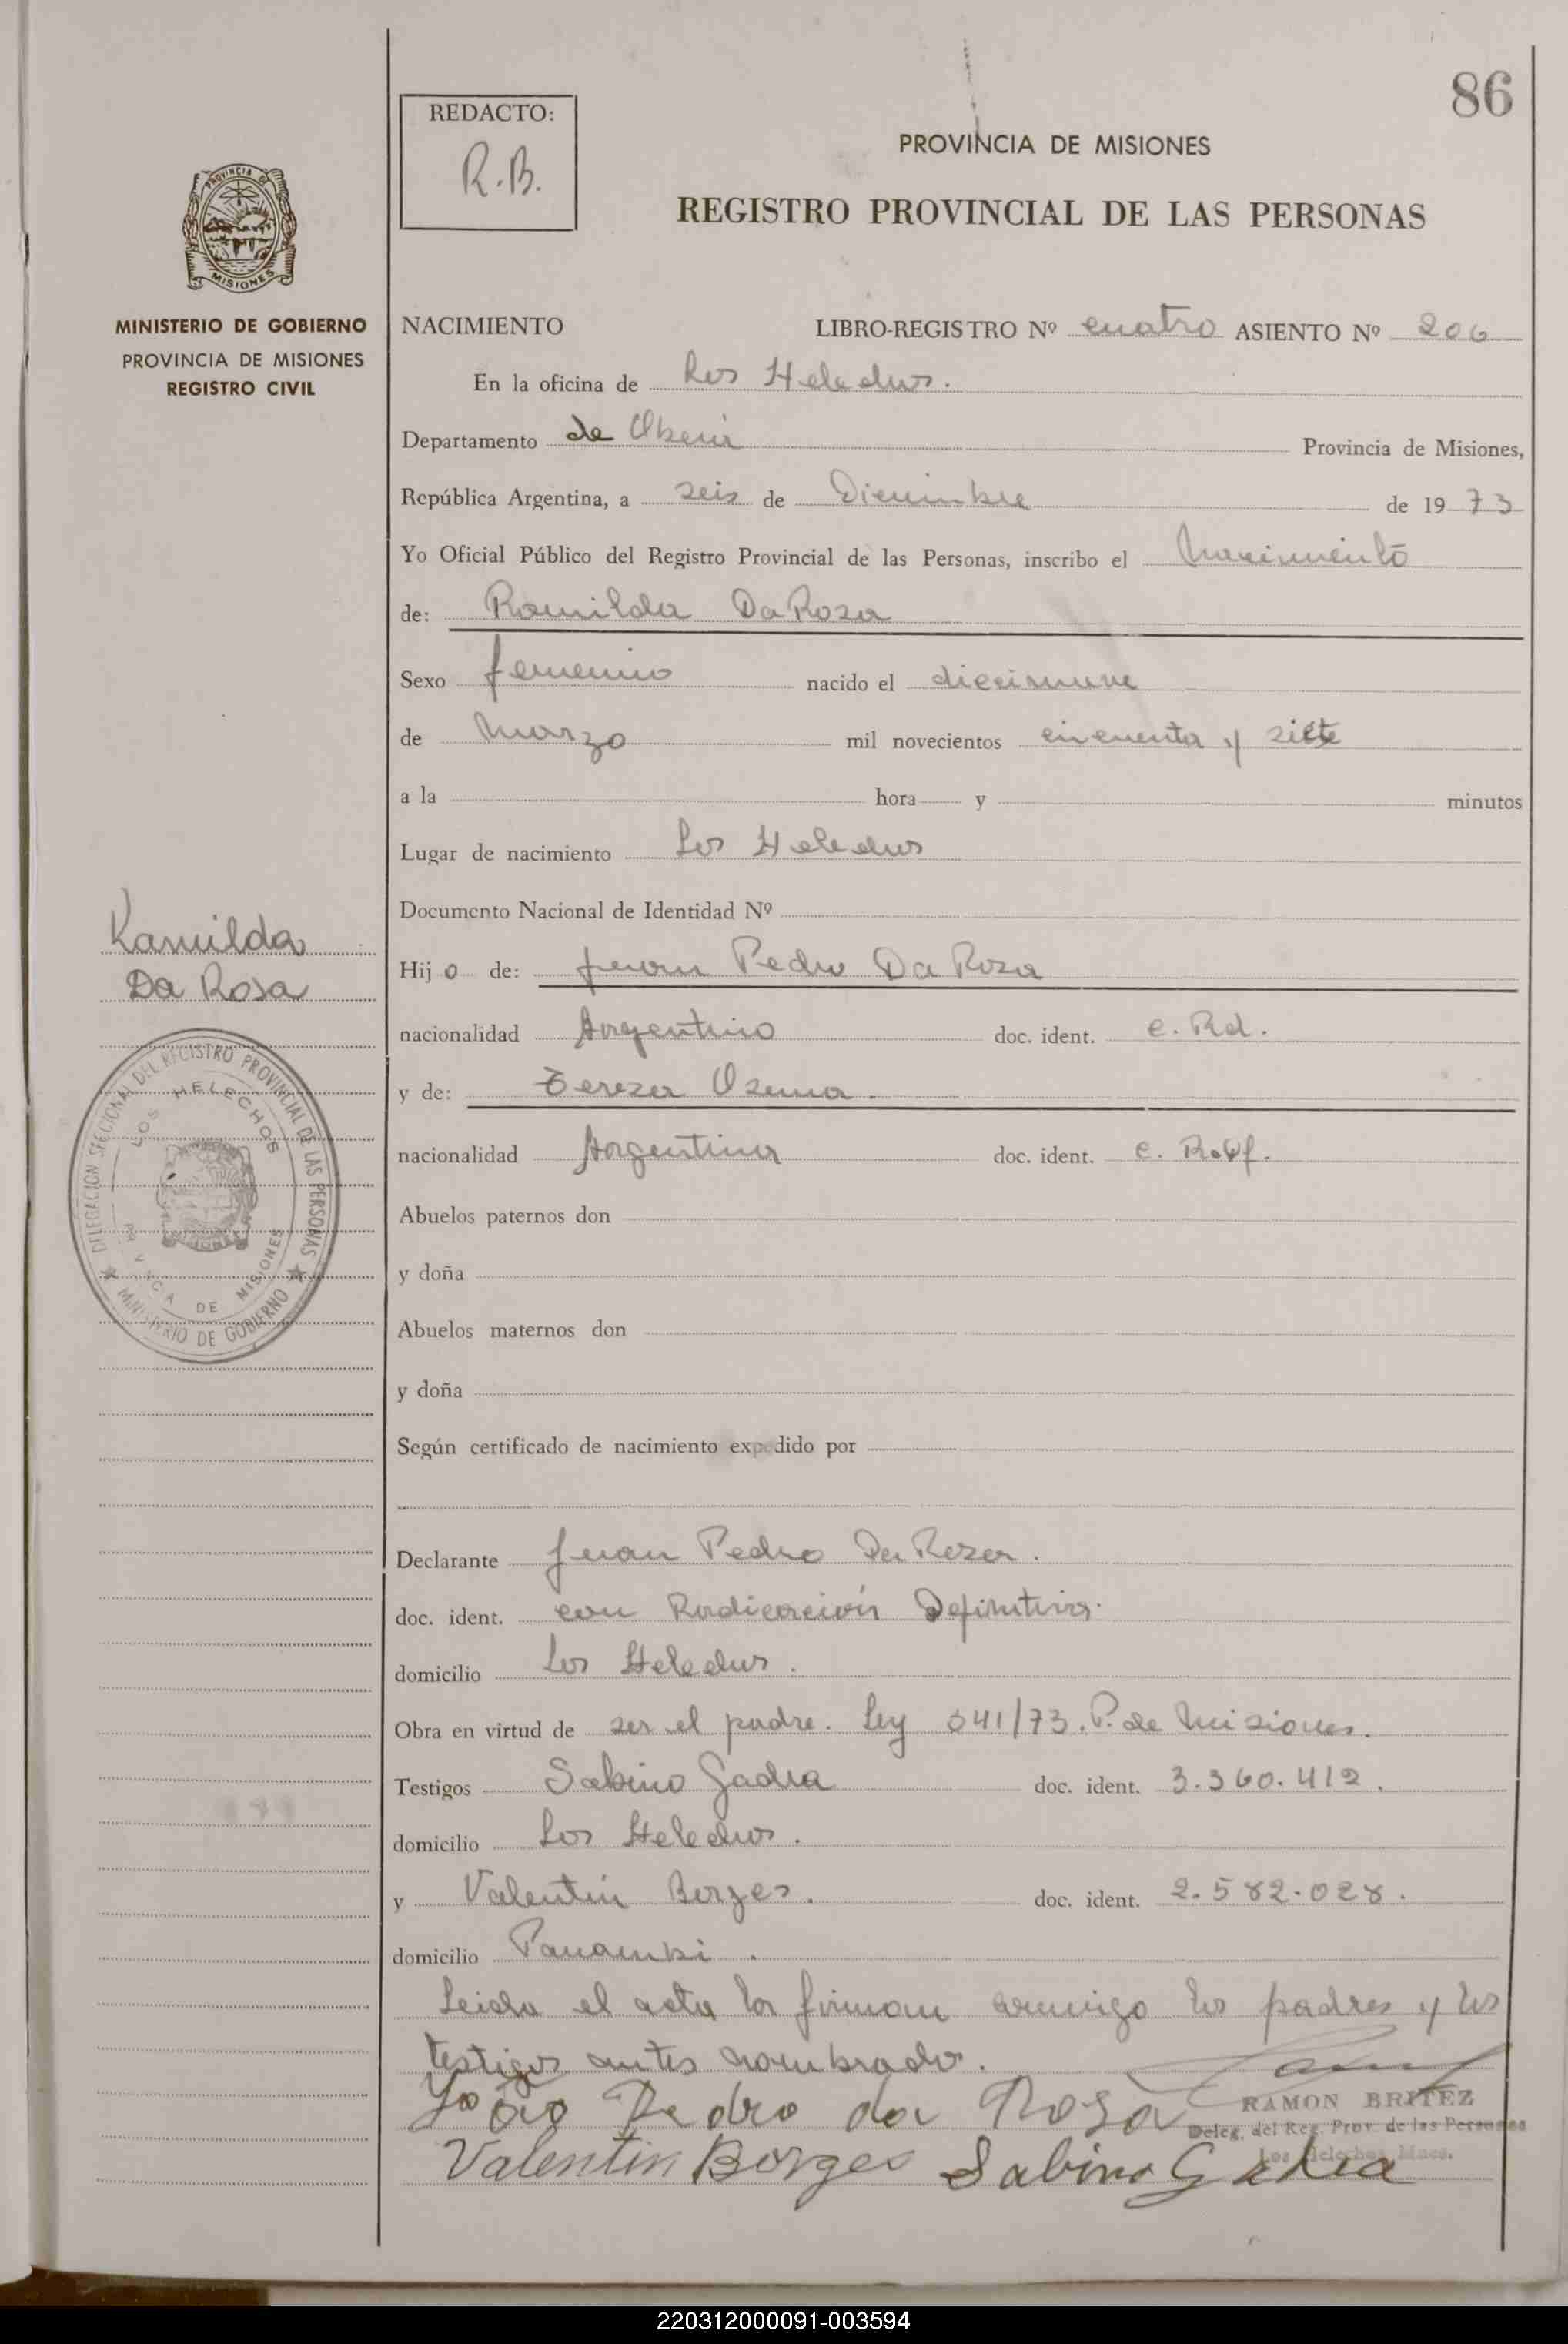 86
REDACTO:
R.B.
PROVINCIA DE MISIONES
REGISTRO PROVINCIAL DE LAS PERSONAS
PROVINCIA DE
MISIONES
MINISTERIO DE GOBIERNO
PROVINCIA DE MISIONES
REGISTRO CIVIL
NACIMIENTO LIBRO-REGISTRO Nº cuatro ASIENTO Nº 206
En la oficina de Los Helechos.
Departamento de Oberá Provincia de Misiones,
República Argentina, a seis de Diciembre de 1973
Yo Oficial Público del Registro Provincial de las Personas, inscribo el Nacimiento
de: Romilda Da Rosa
Sexo femenino nacido el diecinueve
de Marzo mil novecientos cincuenta y siete
a la hora y minutos
Lugar de nacimiento Los Helechos
Documento Nacional de Identidad Nº
Hijo de: Juan Pedro Da Rosa
nacionalidad Argentino doc. ident. c. Rd.
y de: Tereza
nacionalidad Argentina doc. ident. c.
Abuelos paternos don
y doña
Abuelos maternos don
y doña
Según certificado de nacimiento expedido por
Declarante Juan Pedro Da Rosa.
doc. ident. con Radicación Definitiva.
domicilio Los Helechos.
Obra en virtud de ser el padre. Ley 341/73. P. de Misiones.
Testigos Sabino Gadea doc. ident. 3.360.412.
domicilio Los Helechos.
y Valentin Borges. doc. ident. 2.582.028.
domicilio Panambi.
Leida el acta la firman conmigo los padres y los
testigos antes nombrados.
João Pedro da Rosa
RAMON BRITEZ
Deleg. del Reg. Prov. de las Personas
Los Helechos, Mnes.
Valentin Borges Sabino Gadea
Ramilda
Da Rosa
DELEGACION SECCIONAL DEL REGISTRO PROVINCIAL DE LAS PERSONAS
LOS HELECHOS
PROVINCIA DE MISIONES
MINISTERIO DE GOBIERNO
220312000091-003594